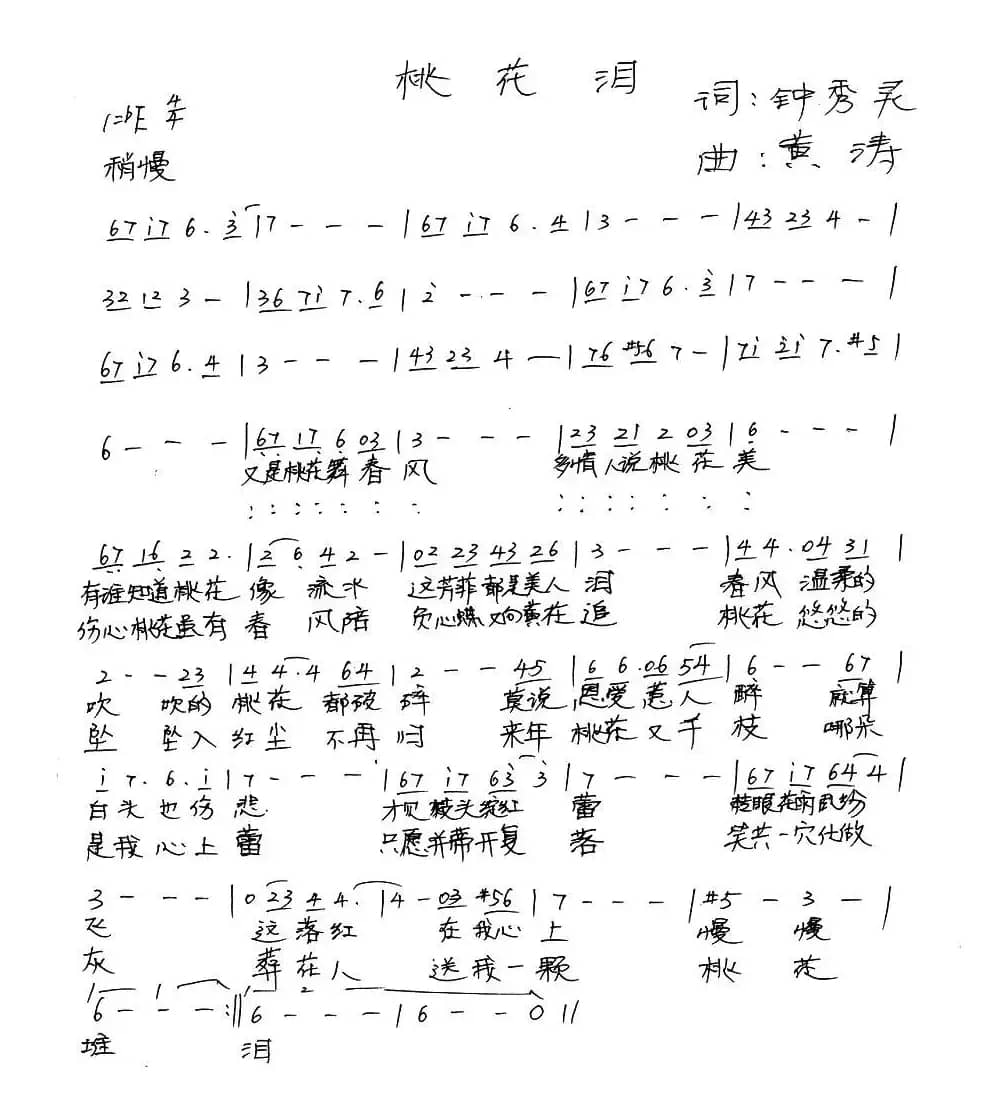 桃花泪
词：钟秀灵
1=bE 4/4
曲：黄涛
稍慢
67 i7 6. 3 | 7 - - - | 67 i7 6. 4 | 3 - - - | 43 23 4 - |
32 12 3 - | 36 7i 7. 6 | 2 - - - | 67 i7 6. 3 | 7 - - - |
67 i7 6. 4 | 3 - - - | 43 23 4 — | 76 #56 7 - | 7i 2i 7. #5 |
6 - - - | 67 17 6 03 | 3 - - - | 23 21 2 03 | 6 - - - |
又是桃花舞春风 多情人说桃花美
67 16 2 2. | 2 6 4 2 - | 02 23 43 26 | 3 - - - | 4 4. 04 31 |
有谁知道桃花像流水 这芳菲都是美人泪 春风温柔的
伤心桃花虽有春风陪 负心蝶又向黄花追 桃花悠悠的
2 - - 23 | 4 4. 4 64 | 2 - - 45 | 6 6. 06 54 | 6 - - 67 |
吹 吹的桃花都破碎 莫说恩爱惹人醉 就算
坠 坠入红尘不再归 来年桃花又千枝 哪朵
i 7. 6. i | 7 - - - | 67 i7 63 3 | 7 - - - | 67 i7 64 4 |
白头也伤悲 才见枝头绽红蕾 眼花雨纷
是我心上蕾 只愿并蒂开复落 笑共一穴化做
3 - - - | 0 23 4 4. | 4 - 03 #56 | 7 - - - | #5 - 3 - |
飞 这落红在我心上 慢慢
灰 葬花人送我一颗 桃花
1 2
6 - - - :|| 6 - - - | 6 - - 0 ||
堆 泪